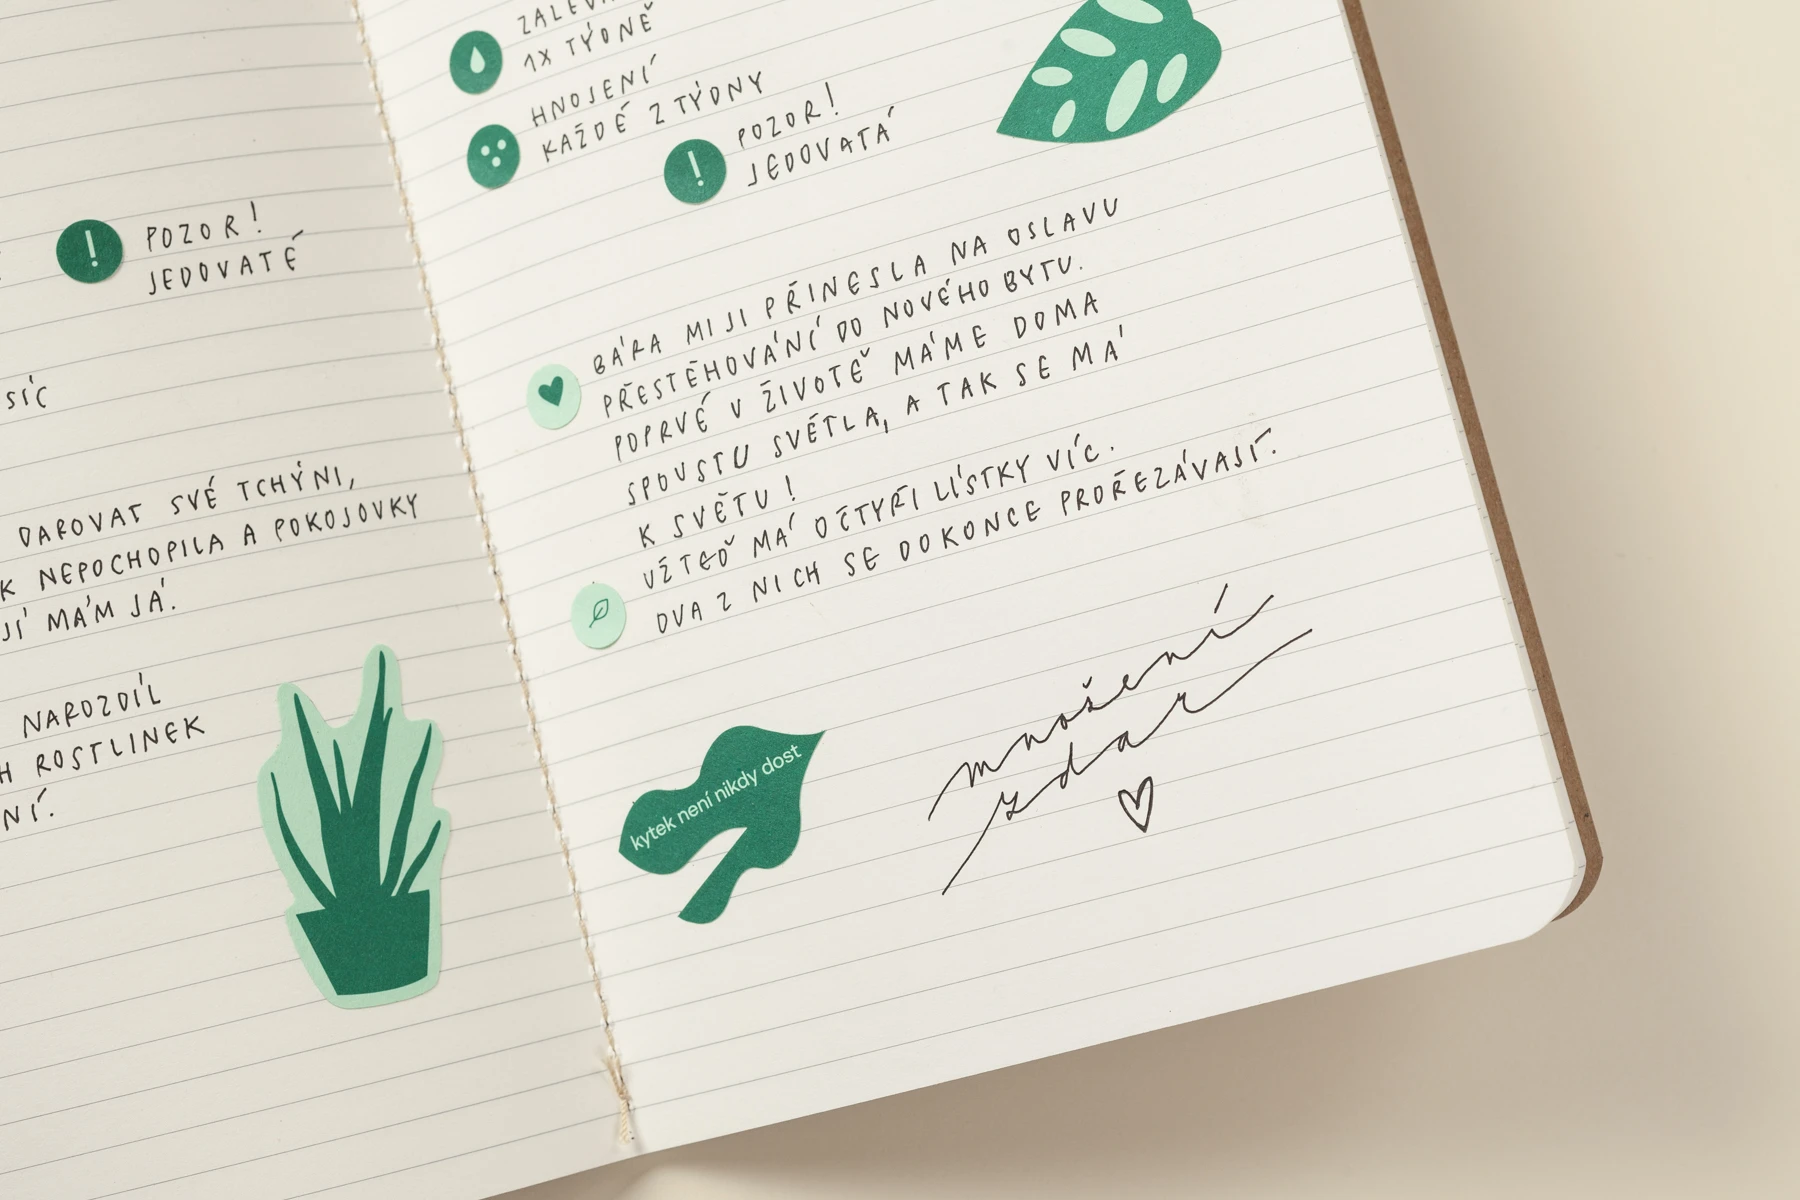 POZOR!
JEDOVATÉ
SÍC
DAROVAT SVÉ TCHÝNI,
K NEPOCHOPILA A POKOJOVKY
JÍ MÁM JÁ.
NAROZDÍL
H ROSTLINEK
NÍ.
1X TÝDNĚ
HNOJENÍ
KAŽDÉ 2 TÝDNY
POZOR!
JEDOVATÁ
BÁRA MI JI PŘINESLA NA OSLAVU
PŘESTĚHOVÁNÍ DO NOVÉHO BYTU.
POPRVÉ V ŽIVOTĚ MÁME DOMA
SPOUSTU SVĚTLA, A TAK SE MÁ
K SVĚTU!
UŽ TEĎ MÁ O ČTYŘI LÍSTKY VÍC.
DVA Z NICH SE DOKONCE PROŘEZÁVAJÍ.
kytek není nikdy dost
množení
zdar